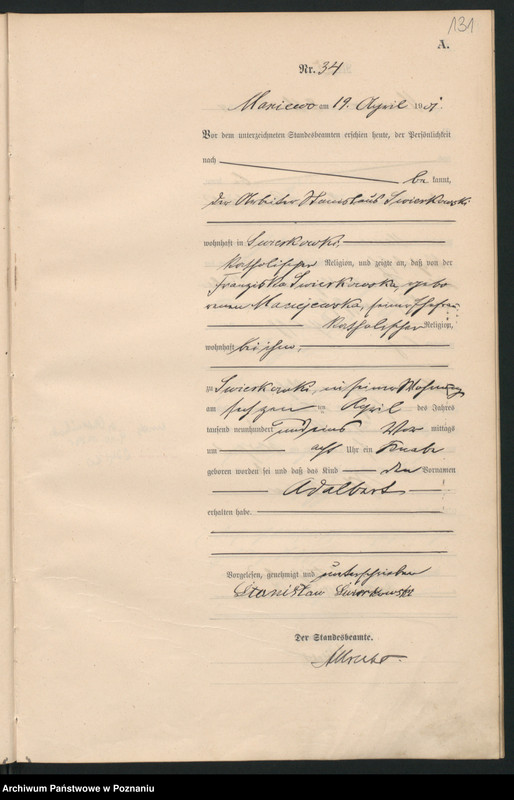 131
A.
Nr. 34
am 19. April 1901.
Vor dem unterzeichneten Standesbeamten erschien heute, der Persönlichkeit
nach
be kannt,
der Arbeiter Stanislaus Swierkowski
wohnhaft in Swierkowki,
katholischer Religion, und zeigte an, daß von der
Franziska Swierkowska, gebo
renen Maciejewska, seiner Ehefrau
katholischer Religion,
wohnhaft bei ihm,
zu Swierkowki, in seiner Wohnung
am April des Jahres
tausend neunhundert und eins Vor mittags
um acht Uhr ein Knabe
geboren worden sei und daß das Kind den Vornamen
Adalbert
erhalten habe.
Vorgelesen, genehmigt und unterschrieben
Stanisław Swierkowski
Der Standesbeamte.
Archiwum Państwowe w Poznaniu